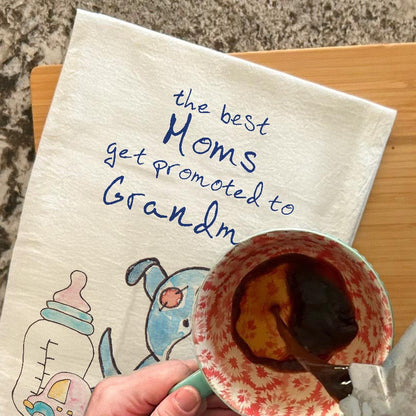 the best
Moms
get promoted to
Grandm